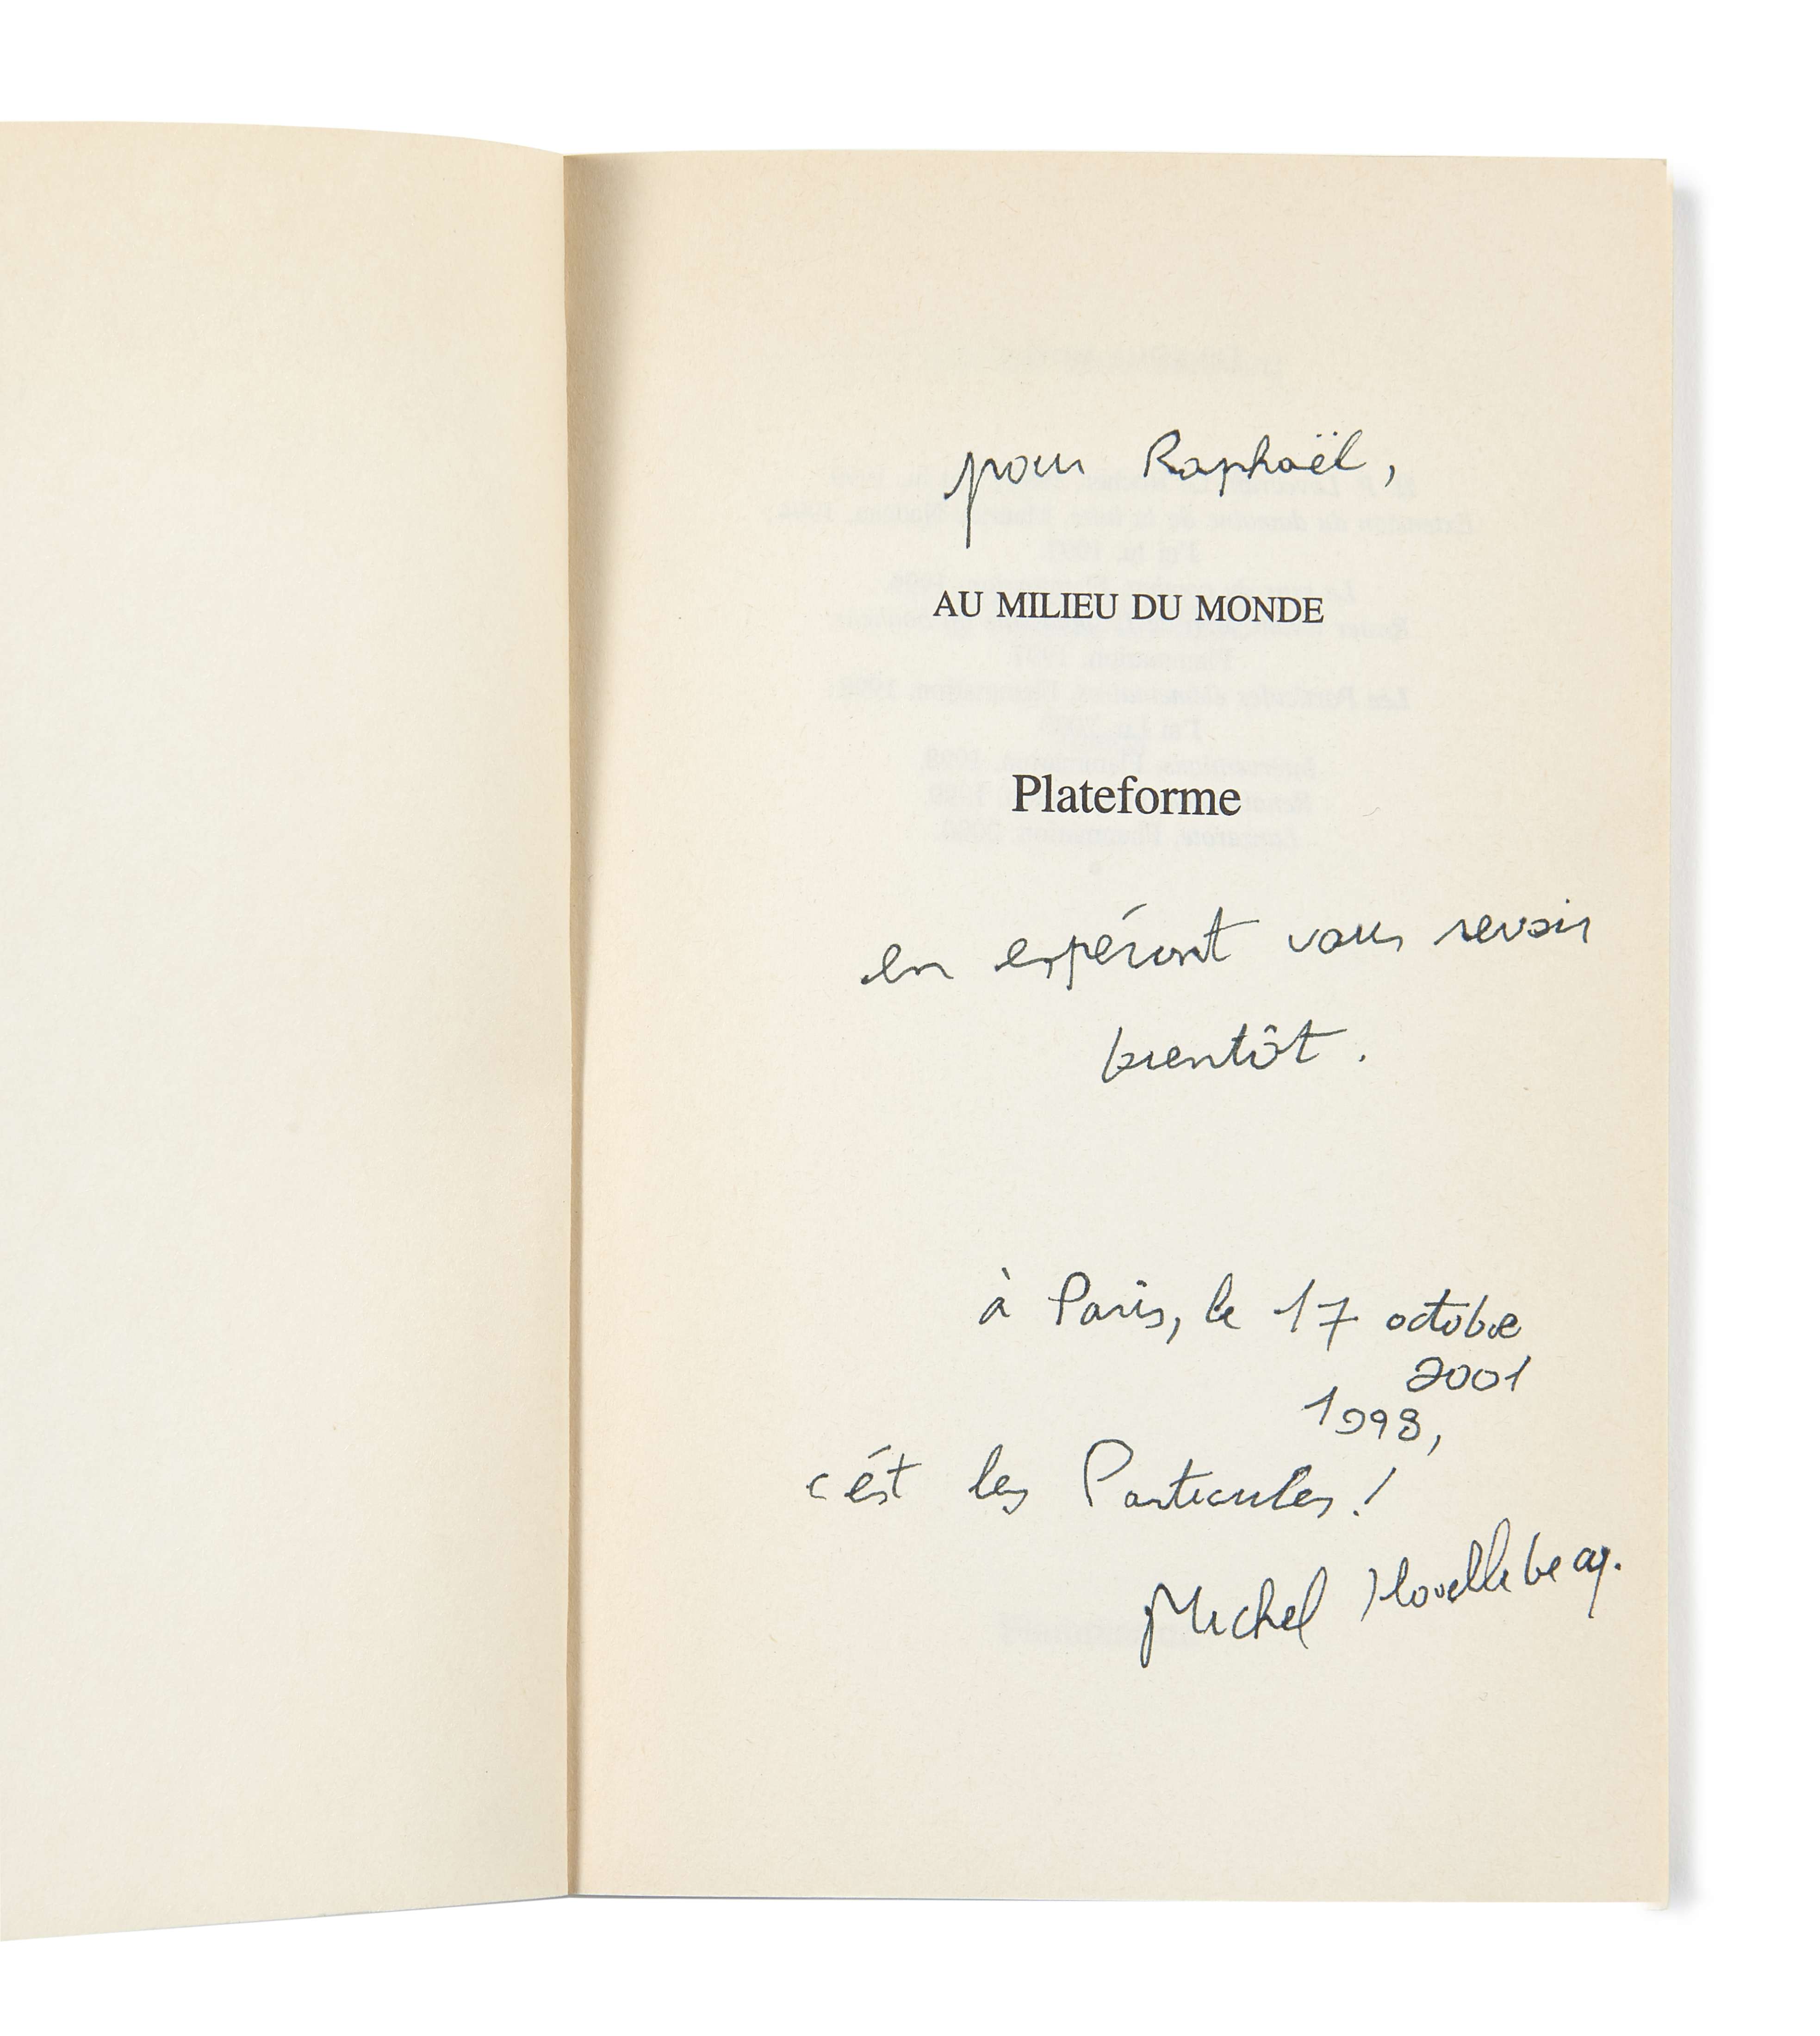 pour Raphaël,
AU MILIEU DU MONDE
Plateforme
en espérant vous revoir
bientôt.
à Paris, le 17 octobre
2001
1998,
c'est les Particules !
Michel Houellebecq.